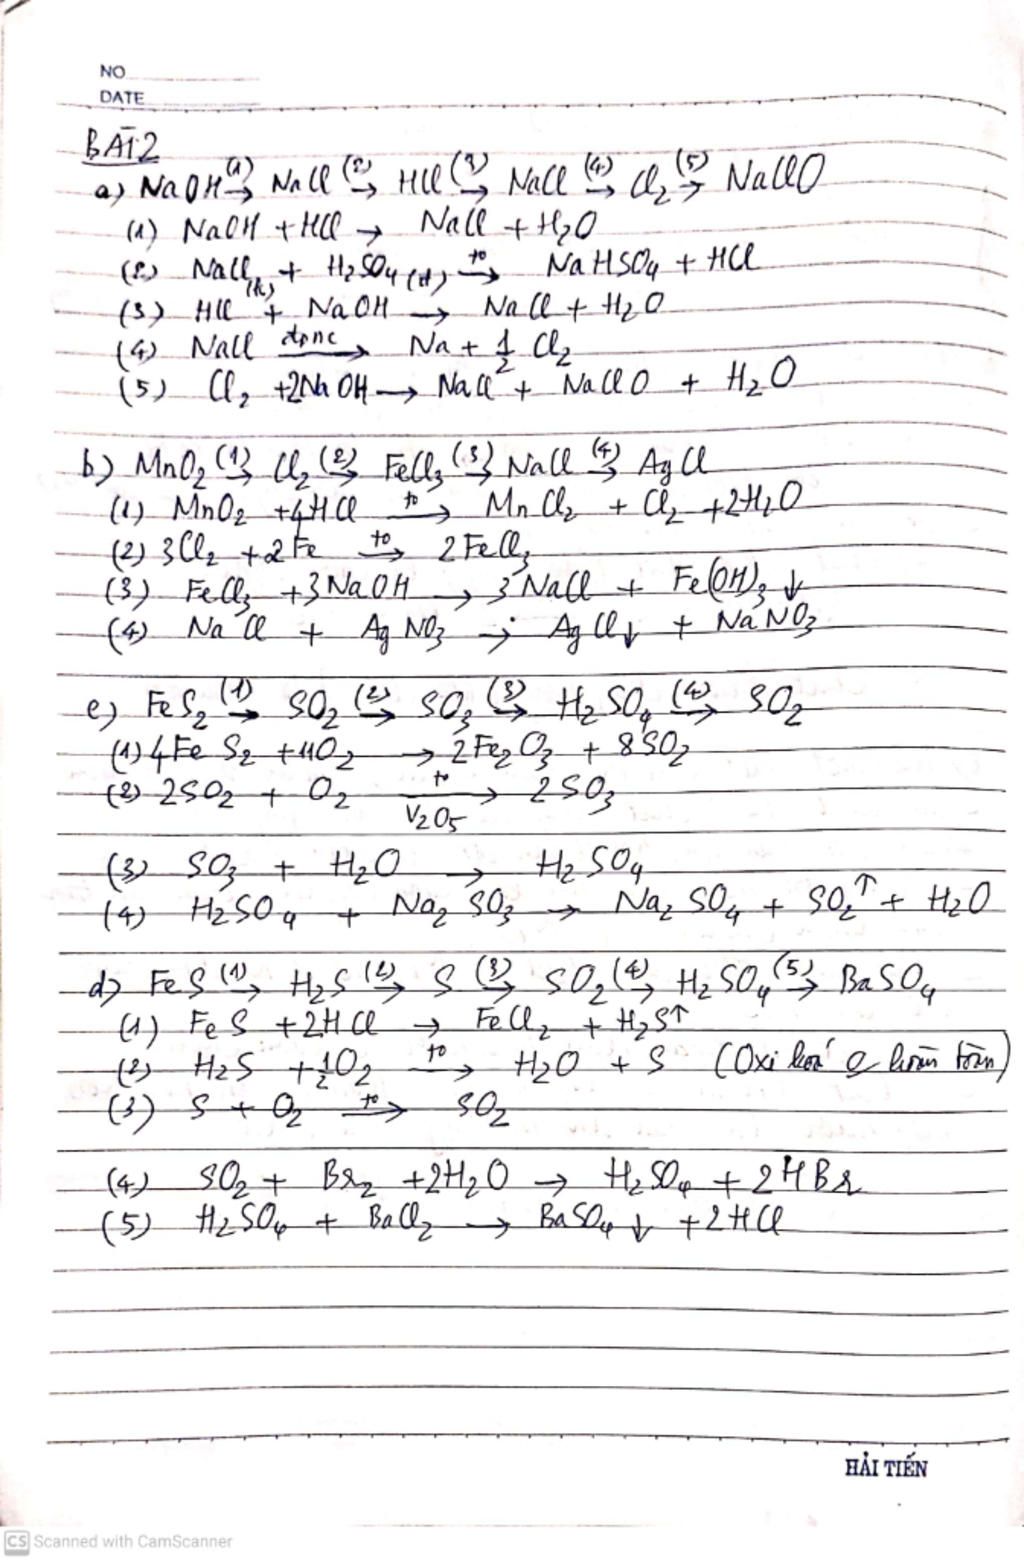 NO
DATE
BÀI 2
a) NaOH (1)→ NaCl (2)→ HCl (3)→ NaCl (4)→ Cl₂ (5)→ NaClO
(1) NaOH + HCl → NaCl + H₂O
(2) NaCl(tt) + H₂SO₄(đ) to→ NaHSO₄ + HCl
(3) HCl + NaOH → NaCl + H₂O
(4) NaCl đpnc→ Na + 1/2 Cl₂
(5) Cl₂ + 2NaOH → NaCl + NaClO + H₂O
b) MnO₂ (1)→ Cl₂ (2)→ FeCl₃ (3)→ NaCl (4)→ AgCl
(1) MnO₂ + 4HCl to→ MnCl₂ + Cl₂ + 2H₂O
(2) 3Cl₂ + 2Fe to→ 2FeCl₃
(3) FeCl₃ + 3NaOH → 3NaCl + Fe(OH)₃ ↓
(4) NaCl + AgNO₃ → AgCl↓ + NaNO₃
c) FeS₂ (1)→ SO₂ (2)→ SO₃ (3)→ H₂SO₄ (4)→ SO₂
(1) 4FeS₂ + 11O₂ → 2Fe₂O₃ + 8SO₂
(2) 2SO₂ + O₂ to→ 2SO₃
V₂O₅
(3) SO₃ + H₂O → H₂SO₄
(4) H₂SO₄ + Na₂SO₃ → Na₂SO₄ + SO₂↑ + H₂O
d) FeS (1)→ H₂S (2)→ S (3)→ SO₂ (4)→ H₂SO₄ (5)→ BaSO₄
(1) FeS + 2HCl → FeCl₂ + H₂S↑
(2) H₂S + 1/2O₂ to→ H₂O + S (Oxi hoá hoàn toàn)
(3) S + O₂ to→ SO₂
(4) SO₂ + Br₂ + 2H₂O → H₂SO₄ + 2HBr
(5) H₂SO₄ + BaCl₂ → BaSO₄ ↓ + 2HCl
HẢI TIẾN
CS Scanned with CamScanner